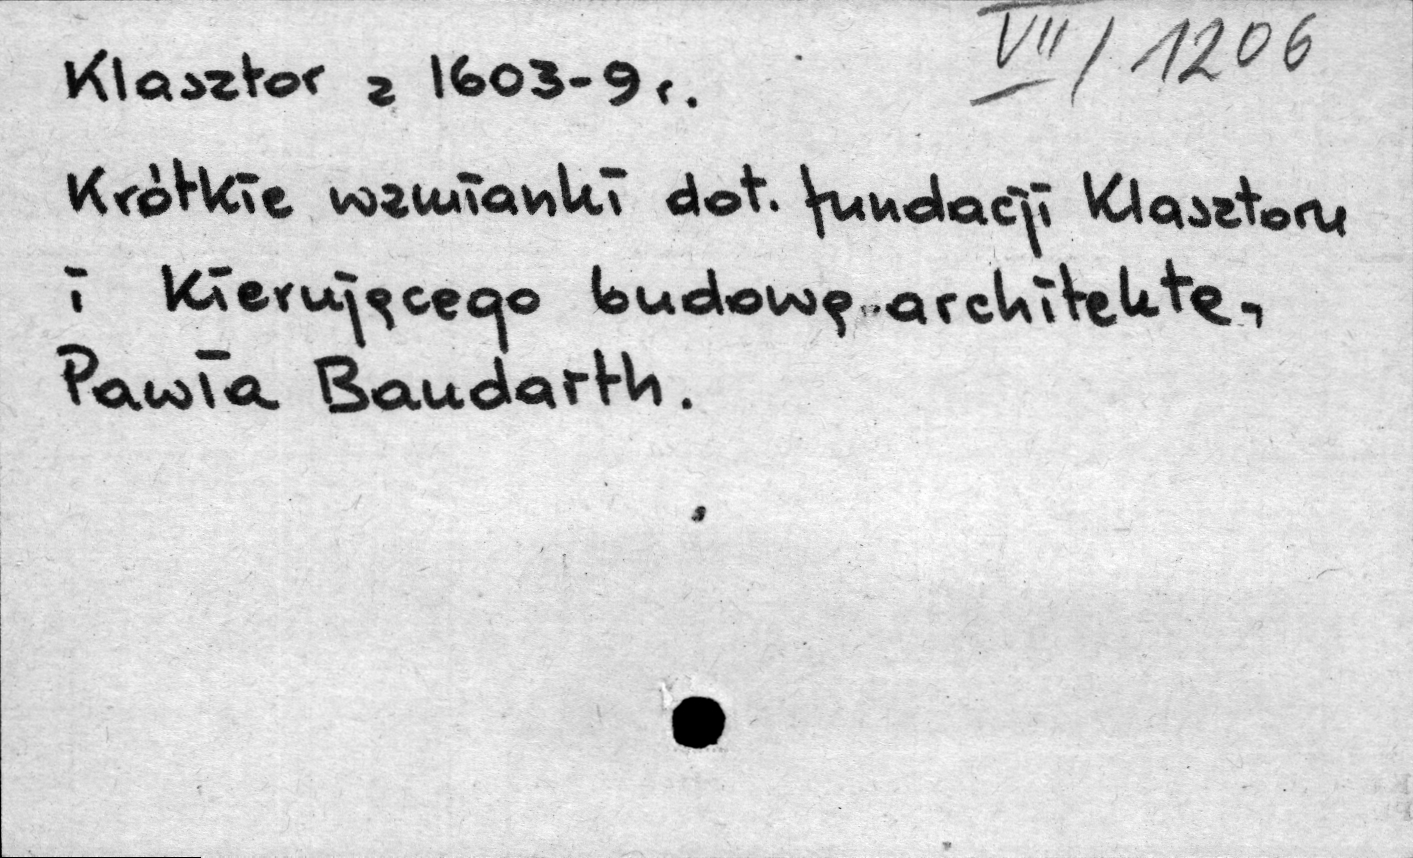 VII/1206
Klasztor z 1603-9 r.
Krótkie wzmianki dot. fundacji Klasztoru
i Kierującego budową architekta,
Pawła Baudarth.